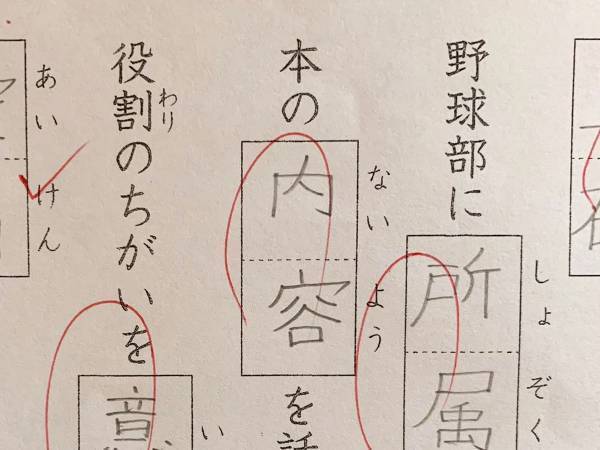 野球部に所属
しょぞく
本の内容を話
ないよう
役割のちがいを意
わり
い
あいけん